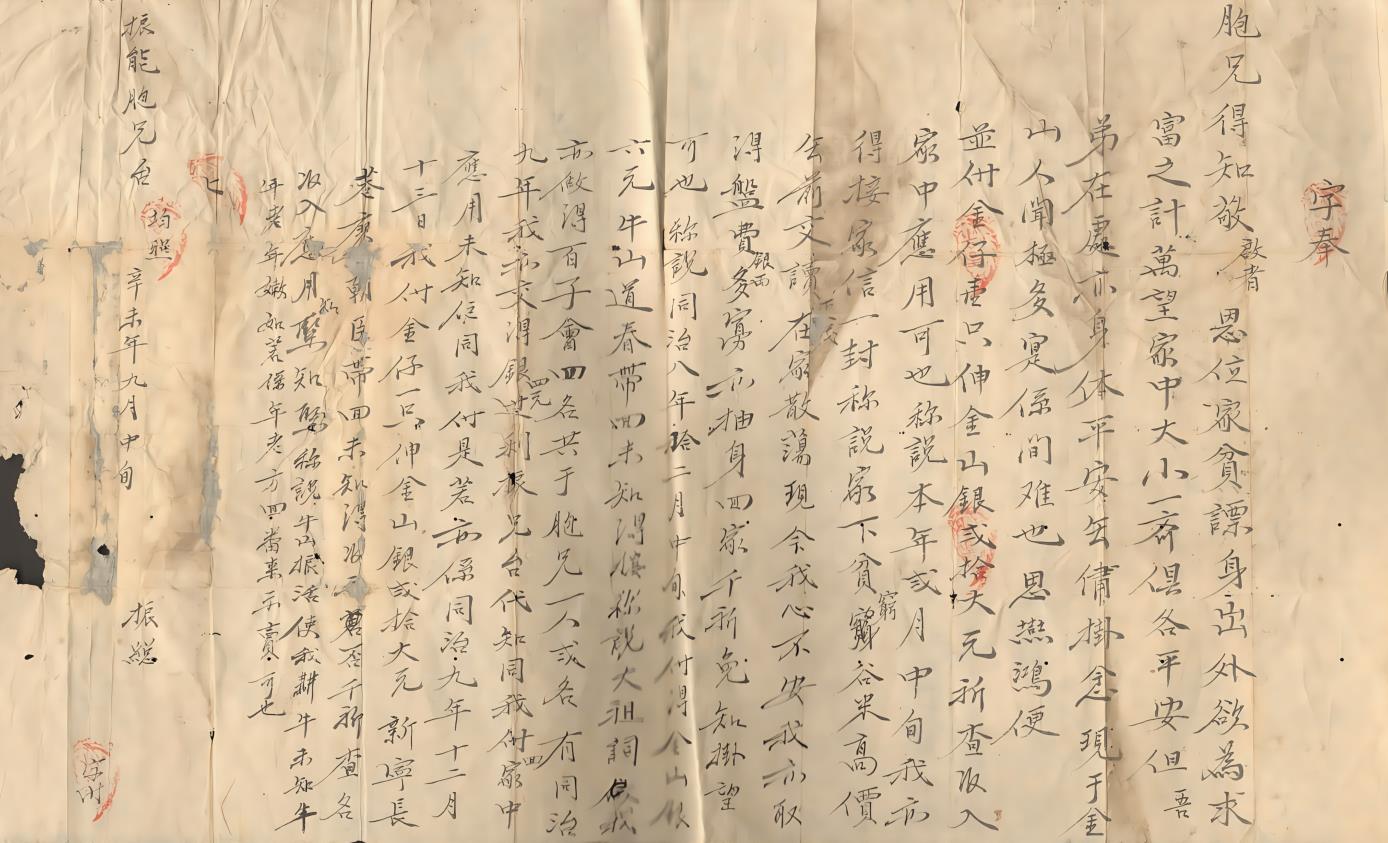 字奉
胞兄得知敬啟者恩位家貧譚身出外欲為求
富之計萬望家中大小一齊俱各平安但吾
弟在處亦身体平安無俻掛念現于金
山人聞極多寔係间难也思燕鴻便
並付金仔壹只伸金山銀弍拾大元祈查收入
家中應用可也称說本年弍月中旬我亦
得接家信一封称說家下貧窮谷米高價
去前交讀在家散蕩現今我心不安我亦取
得盤費銀両多寡亦抽身回家千祈免知掛望
可也称說同治八年拾二月中旬我付得金山銀
六元牛山道春帶回未知得慎称說大祖詞
亦做得百子會四名共于胞兄一人弍名有同治
九年我亦交得銀四元振兄台代知同我付家中
應用未知佢同我付是若亦係同治九年十二月
十三日我付金仔一只伸金山銀弍拾大元新寧長
庚朝臣帶回未知得收否千祈查名
收入應用称說牛山振活使我耕牛未知牛
年老年嫩如若係年老方回番來示賣可也
振能胞兄台 均照 辛未年九月中旬 振總 字付